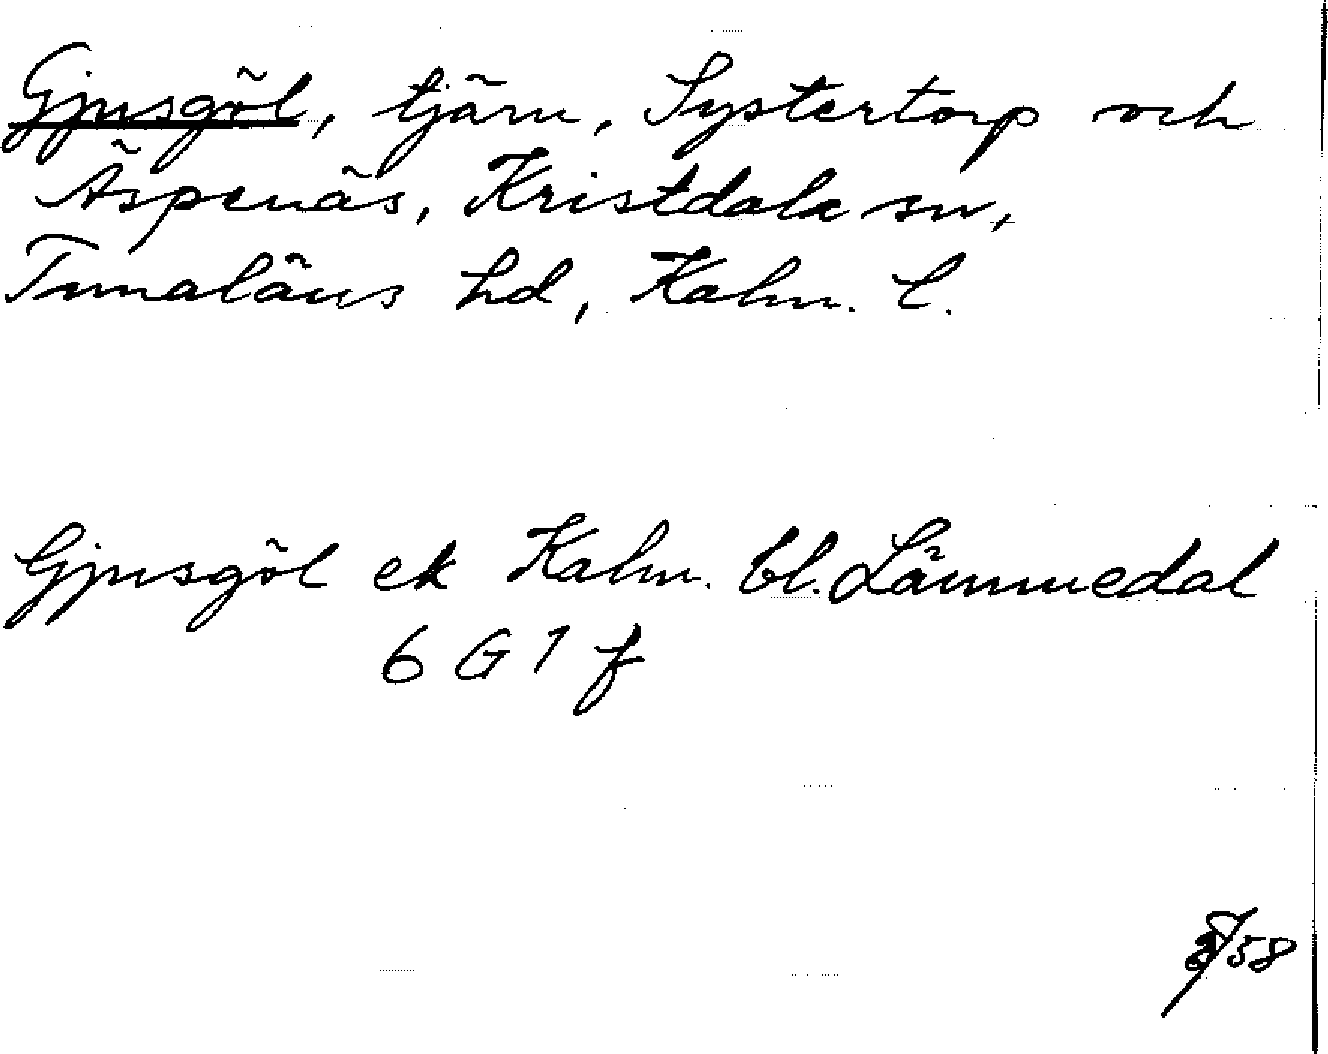 Gjusgöl, tjärn, Systertorp och
Äspenäs, Kristdala sn,
Tunaläns hd, Kalm. l.
Gjusgöl ek Kalm. bl. Lämmedal
6 G 7 f
/58